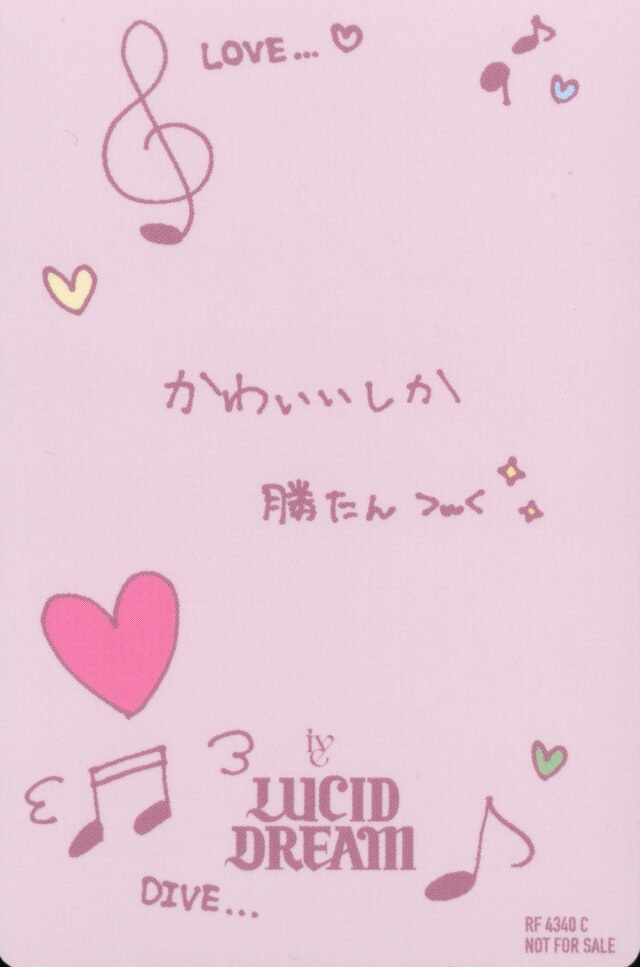 LOVE...
かわいいしか
勝たん >ω<
IVE
LUCID
DREAM
DIVE...
RF 4340 C
NOT FOR SALE